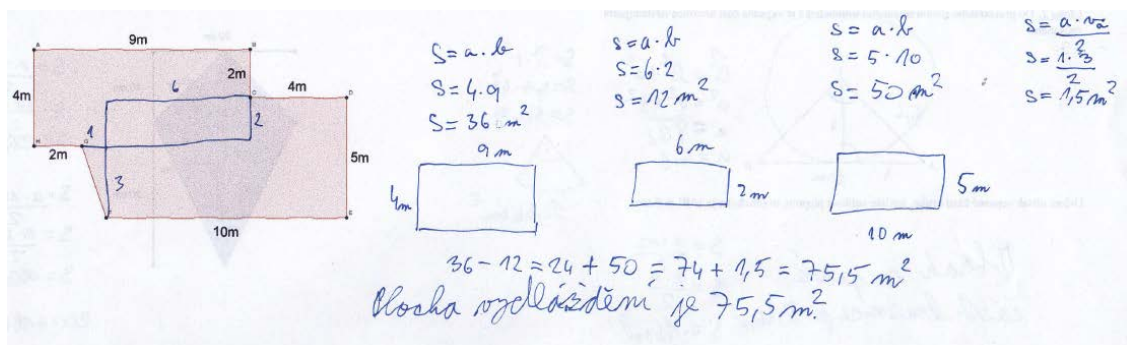 9m
A
B
2m
4m
6
4m
C
D
4m
1
2
2m
3
5m
10m
S = a · b
S = 4 · 9
S = 36 m²
9 m
4m
S = a · b
S = 6 · 2
S = 12 m²
6 m
2 m
S = a · b
S = 5 · 10
S = 50 m²
5 m
10 m
S = a · va / 2
S = 1 · 3 / 2
S = 1,5 m²
36 - 12 = 24 + 50 = 74 + 1,5 = 75,5 m²
Plocha vydláždění je 75,5 m².